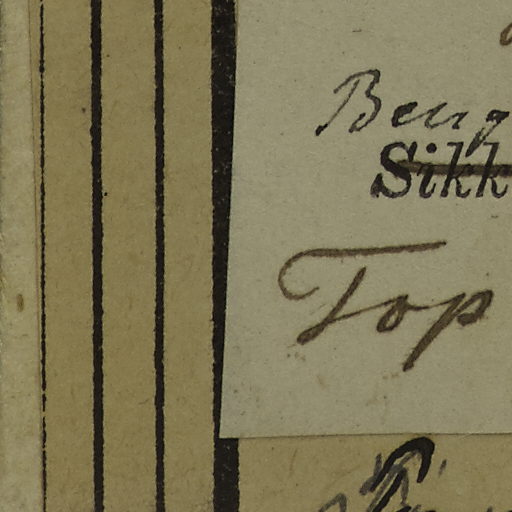 Beng
Sikk
Top